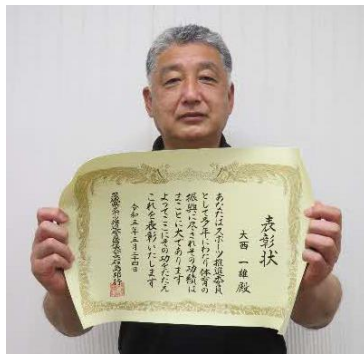 表彰状
大西 一雄 殿
あなたはスポーツ推進委員
として多年にわたり体育の
振興に尽されその功績は
まことに大であります
よってここにその功をたたえ
これを表彰いたします
令和五年三月二十四日